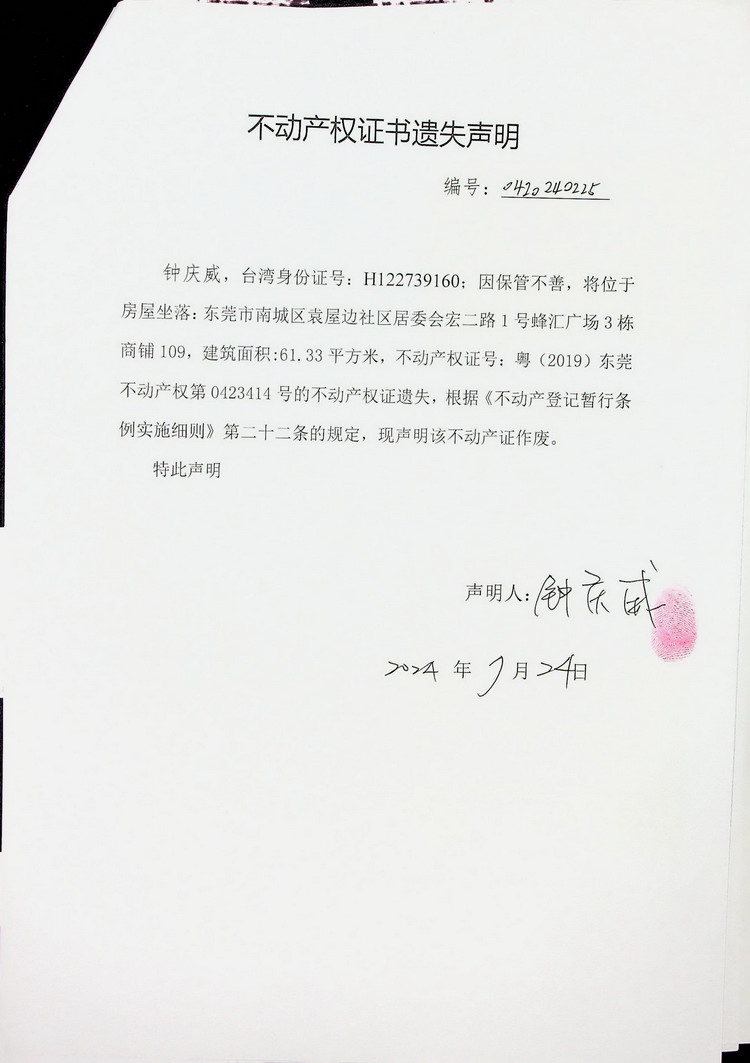 不动产权证书遗失声明
编号：0420240225
钟庆威，台湾身份证号：H122739160；因保管不善，将位于
房屋坐落：东莞市南城区袁屋边社区居委会宏二路1号蜂汇广场3栋
商铺109，建筑面积:61.33平方米，不动产权证号：粤（2019）东莞
不动产权第0423414号的不动产权证遗失，根据《不动产登记暂行条
例实施细则》第二十二条的规定，现声明该不动产证作废。
特此声明
声明人：钟庆威
2024年7月24日